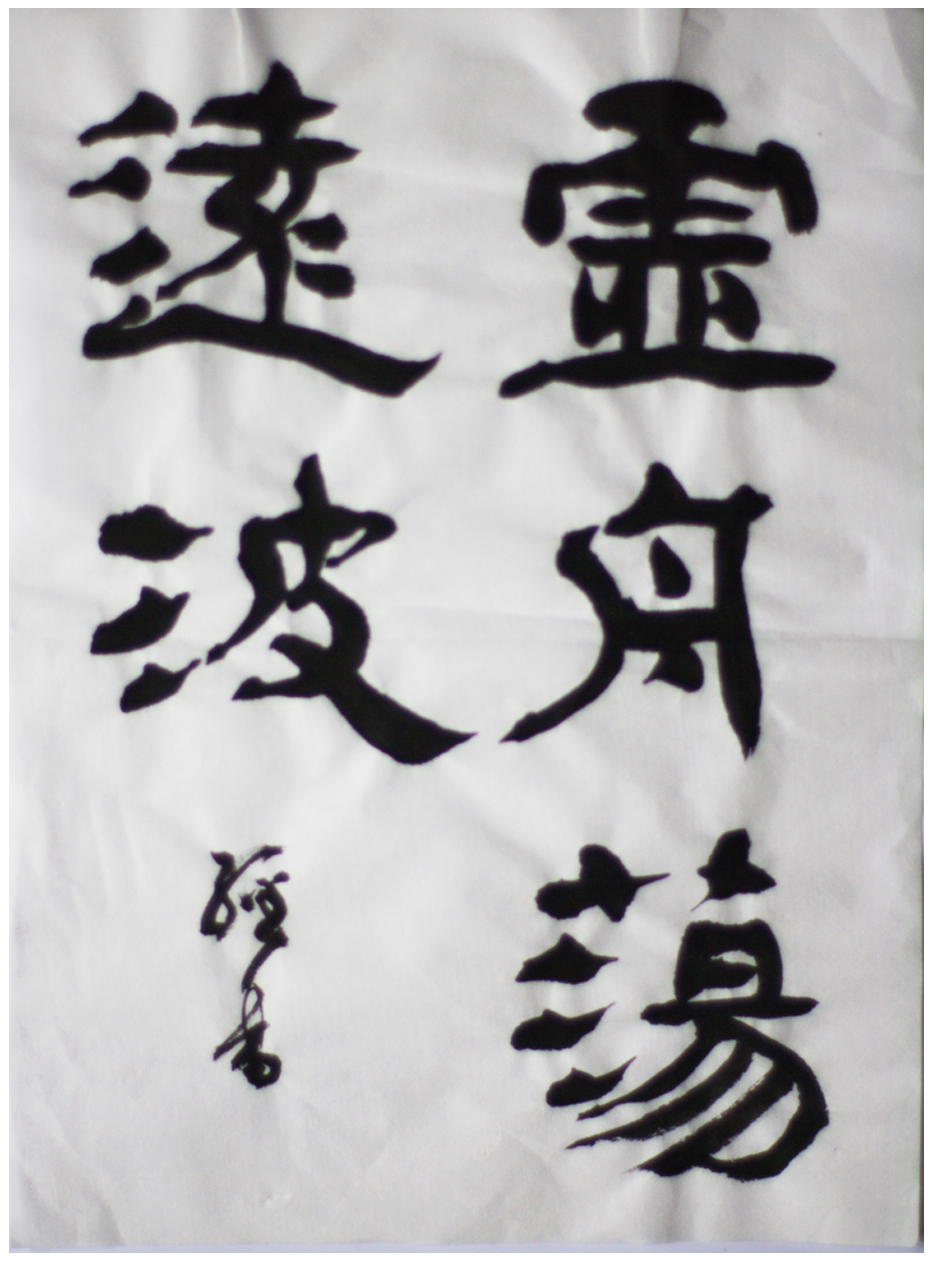 霊舟蕩
遠波
書